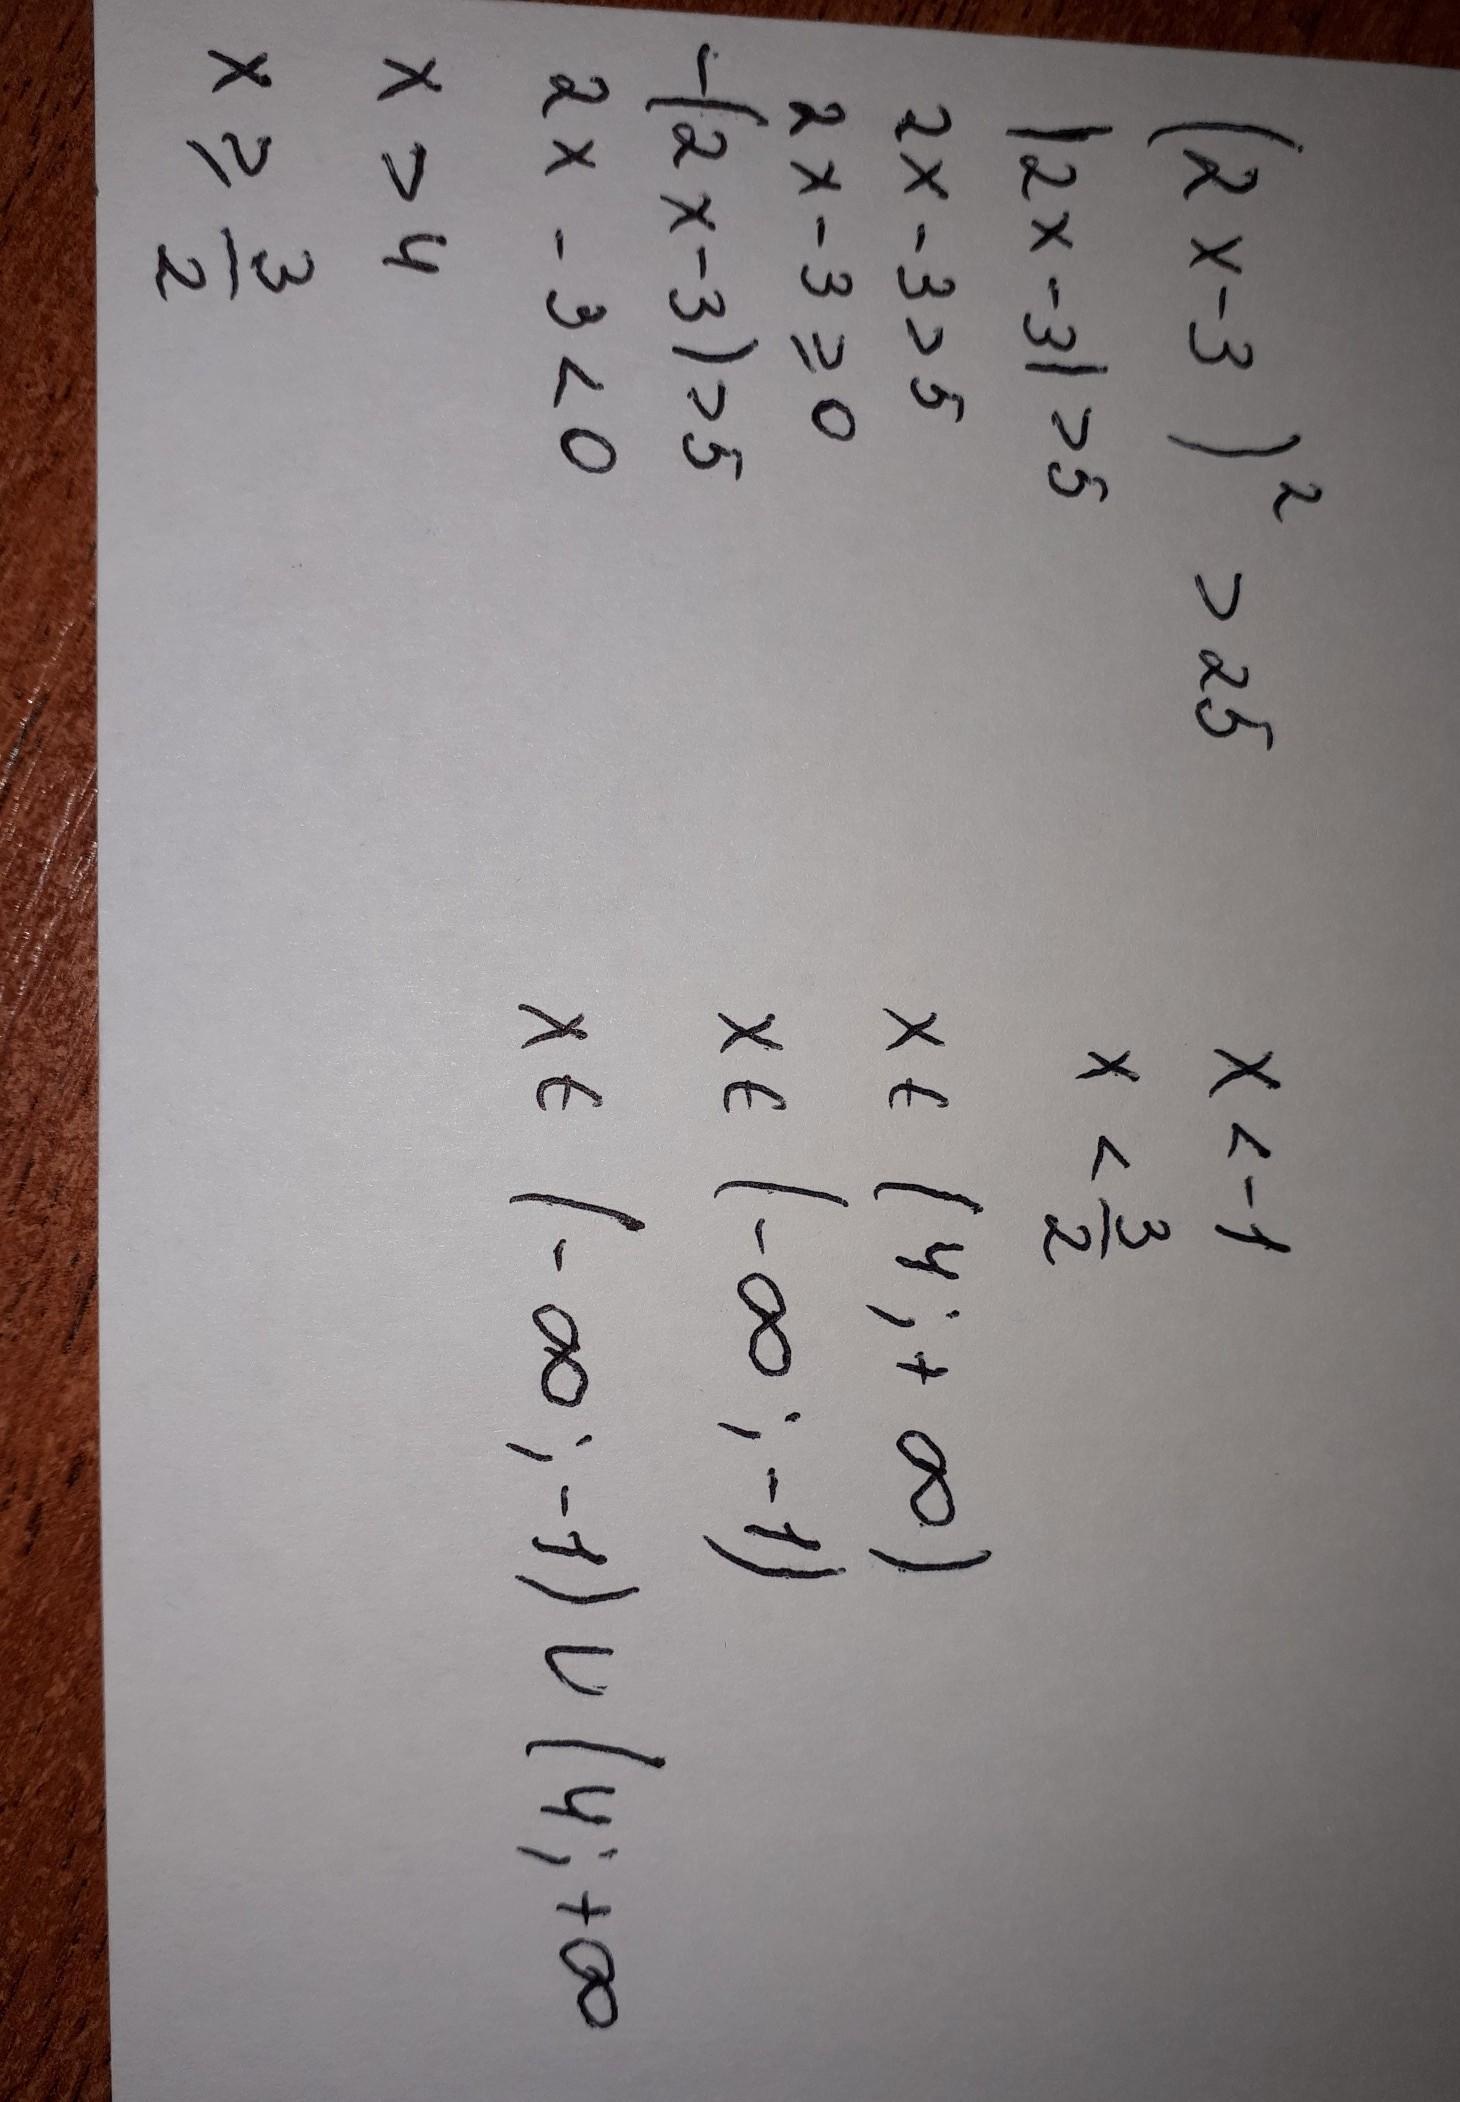 (2x-3)² > 25
|2x-3| > 5
2x-3 > 5
2x-3 ≥ 0
-(2x-3) > 5
2x-3 < 0
x > 4
x ≥ 3/2
x < -1
x < 3/2
x ∈ (4; +∞)
x ∈ (-∞; -1)
x ∈ (-∞; -1) ∪ (4; +∞